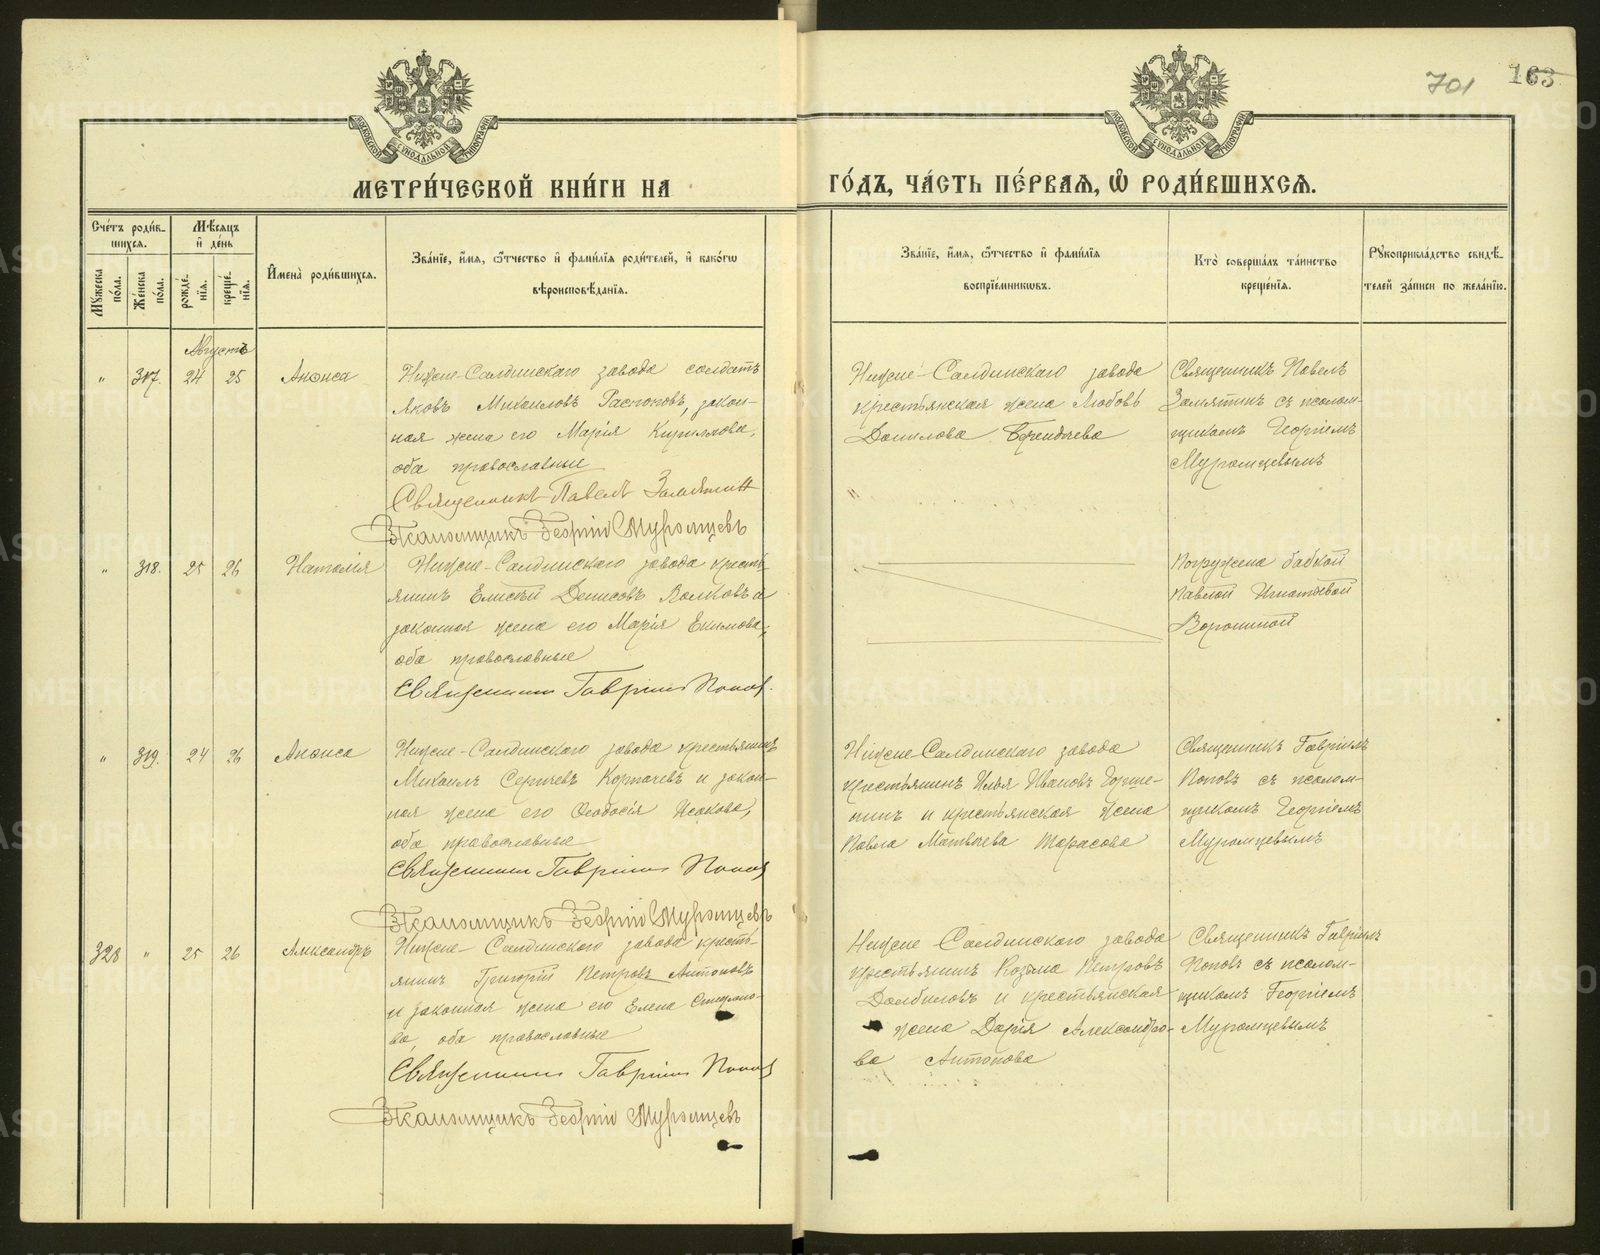 701
163
МОСКОВСКОЙ СѴНОДАЛЬНОЙ ТИПОГРАФІИ
МОСКОВСКОЙ СѴНОДАЛЬНОЙ ТИПОГРАФІИ
МЕТРИ́ЧЕСКОЙ КНИ́ГИ НА
ГО́ДЪ, ЧА́СТЬ ПЕ́РВАЯ, Ѡ РОДИ́ВШИХСЯ.
Сче́тъ роди́в-
шихся.
Му́жеска по́ла.
Же́нска по́ла.
Мѣ́сяцъ
и҆ де́нь
рожде́-
нїя.
креще́-
нїя.
И҆мена̀ роди́вшихся.
Зва́нїе, и҆́мя, ѻ҆́тчество и҆ фами́лїя роди́телей, и҆ како́гѡ
вѣроисповѣ́данїя.
Зва́нїе, и҆́мя, ѻ҆́тчество и҆ фами́лїя
воспрїе́мникѡвъ.
Кто̀ соверша́лъ та́инство
креще́нїя.
Рꙋкоприкла́дство свидѣ́-
телей за́писи по жела́нїю.
Августъ
" 317. 24 25 Анѳиса
Нижне-Салдинскаго завода солдатъ
Яковъ Михаиловъ закон-
ная жена его Марія Кириллова,
оба православные
Священникъ Павелъ Замятин
Псаломщикъ Георгій Муромцевъ
Нижне-Салдинскаго завода
крестьянская жена Любовь
Данилова
Священникъ Павелъ
Замятинъ съ псалом-
щикомъ Георгіемъ
Муромцевымъ
" 318. 25 26 Наталія
Нижне-Салдинскаго завода кресть-
янинъ Елисѣй Денисовъ Волковъ и
законная жена его Марія Екимова,
оба православные
Священник Гавриил Попов.
Погружена бабкой
Павлой Игнатьевой
Ворониной
" 319. 24 26 Анѳиса
Нижне-Салдинскаго завода крестьянинъ
Михаилъ Сергѣевъ Корпачевъ и закон-
ная жена его Ѳеодосія Исакова,
оба православные
Священник Гавриил Попов
Псаломщикъ Георгій Муромцевъ
Нижне-Салдинскаго завода
крестьянинъ Илья Ивановъ Горше-
нинъ и крестьянская жена
Павла Матвѣева Тарасова
Священникъ Гавріилъ
Поповъ съ псалом-
щикомъ Георгіемъ
Муромцевымъ
328 " 25 26 Александръ
Нижне-Салдинскаго завода кресть-
янинъ Григорій Петровъ Антоновъ
и законная жена его Елена Степано-
ва, оба православные
Священник Гавриил Попов
Псаломщикъ Георгій Муромцевъ
Нижне Салдинскаго завода
крестьянинъ Козма Петровъ
Долбиловъ и крестьянская
жена Дарія Александро-
ва Антонова
Священникъ Гавріилъ
Поповъ съ псалом-
щикомъ Георгіемъ
Муромцевымъ
METRIKI.GASO-URAL.RU